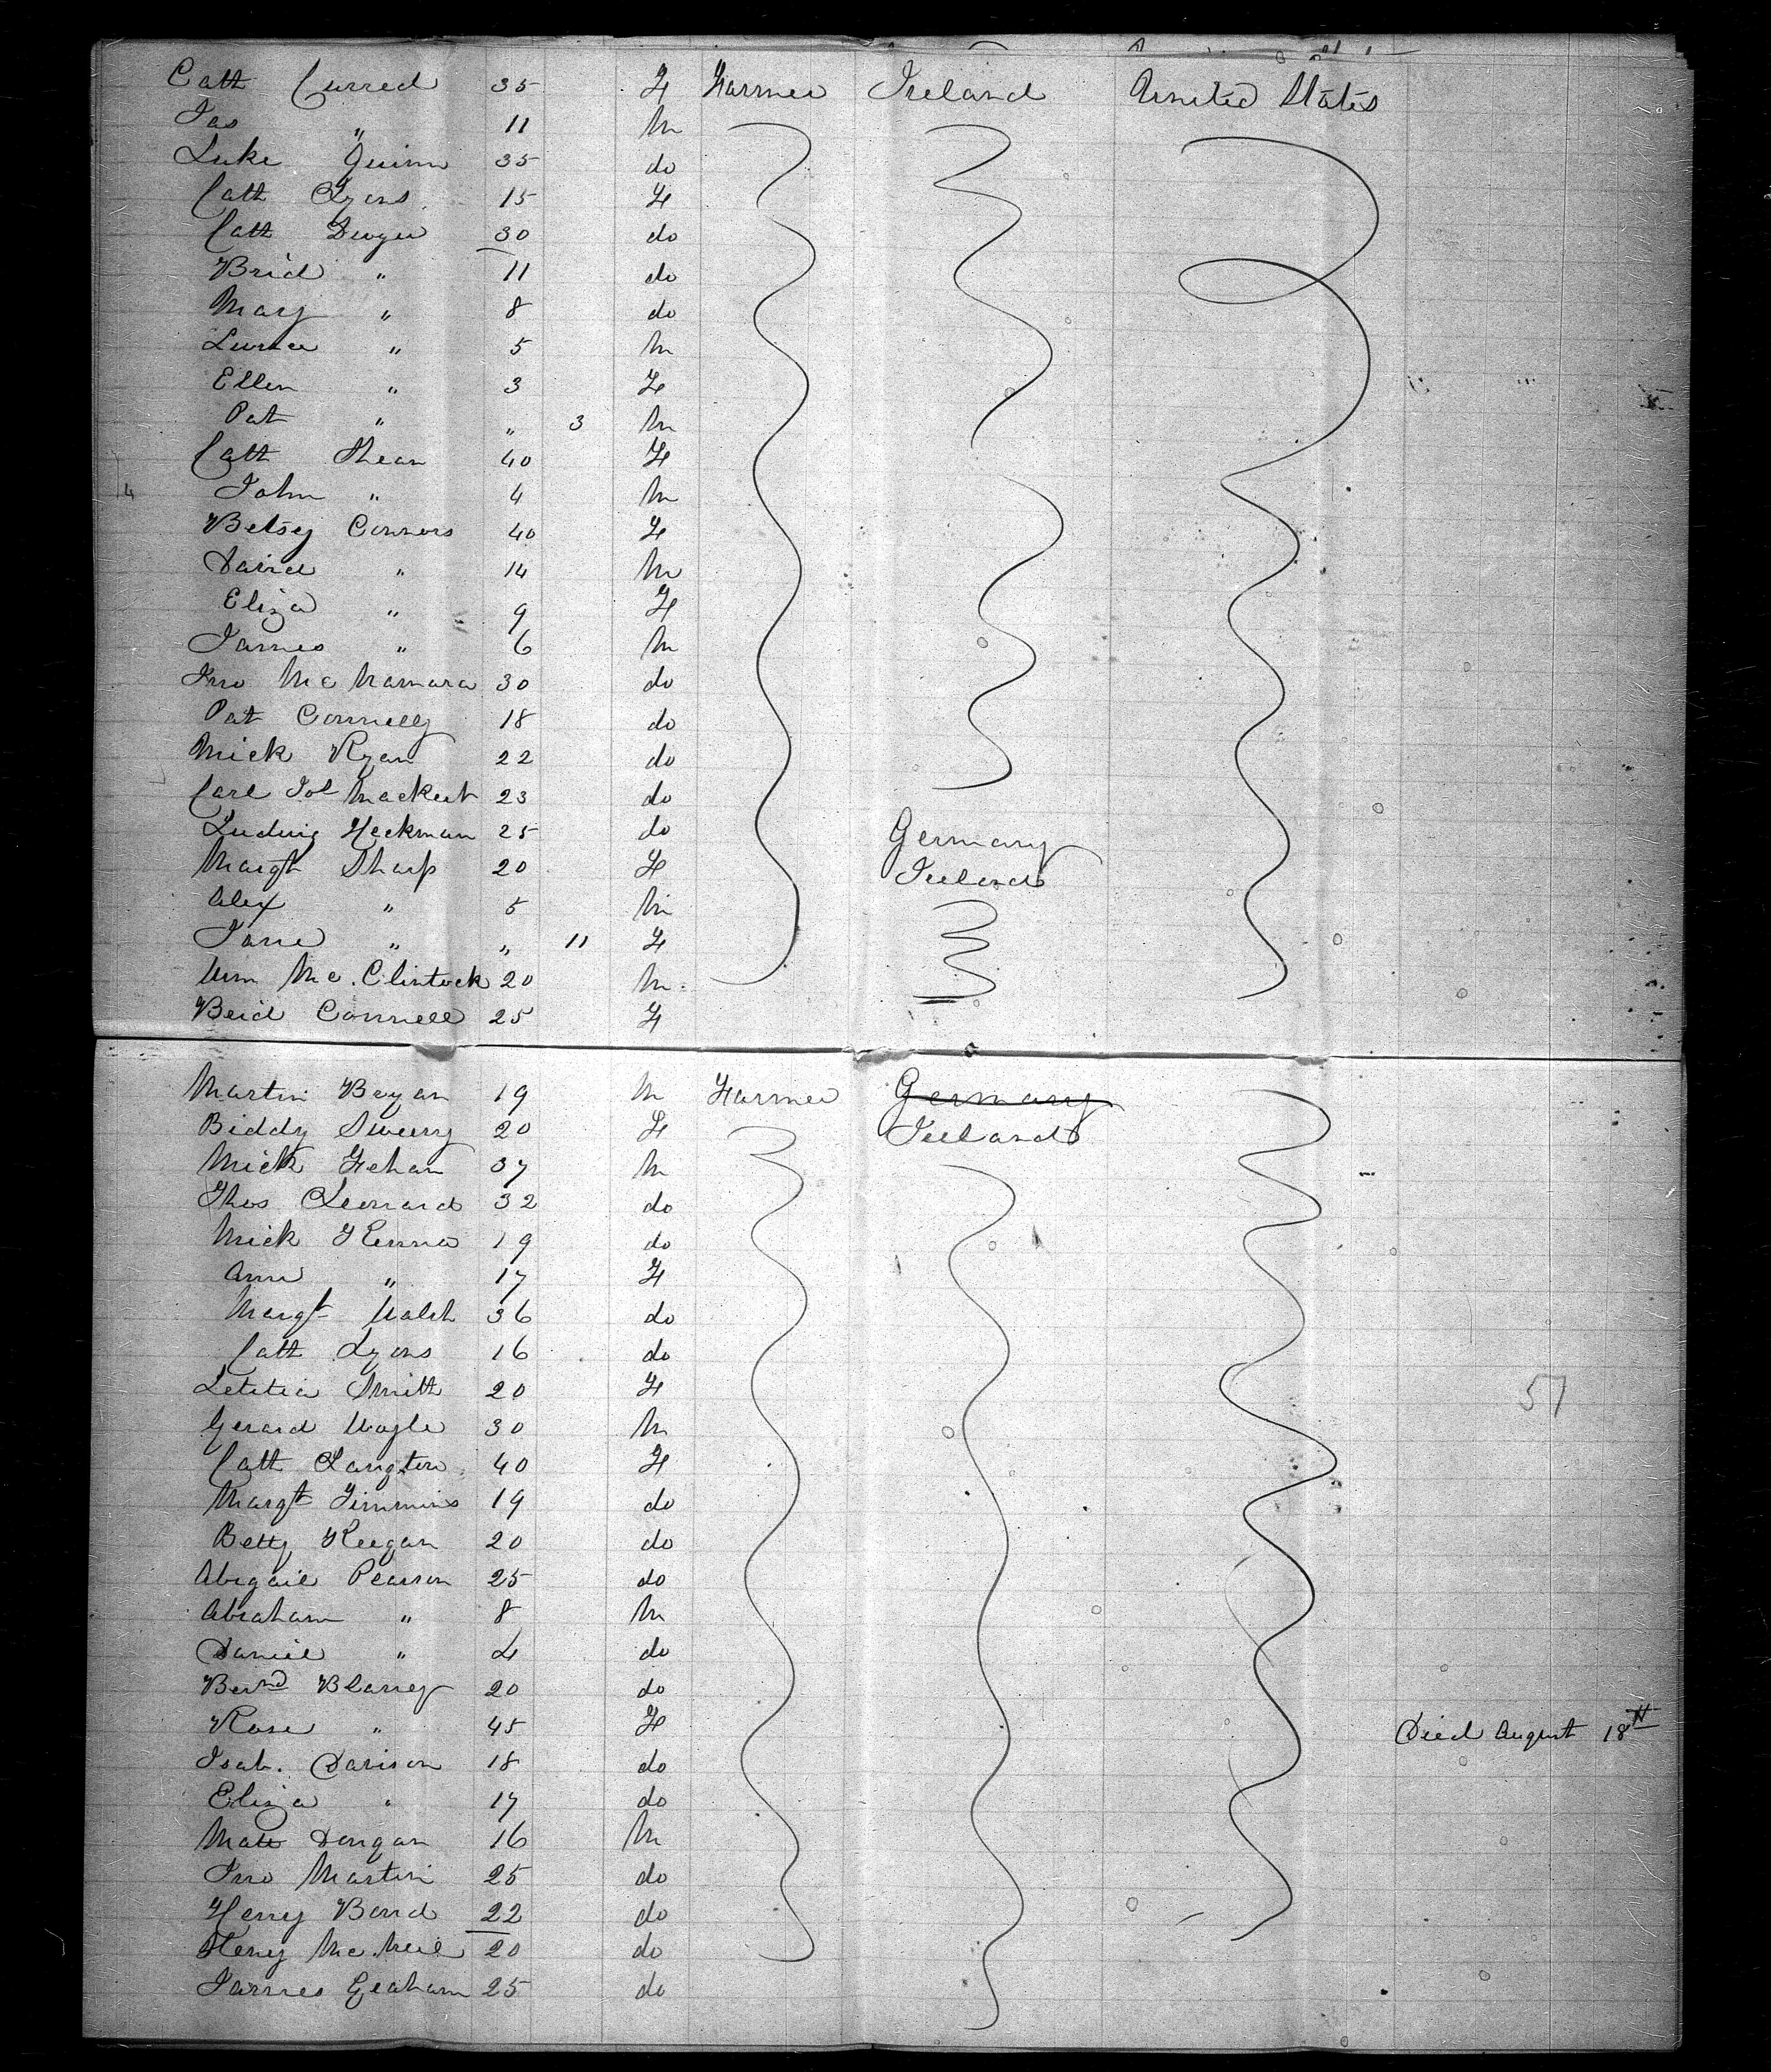 Cath Curred 35 F Farmer Ireland United States
Jas " 11 M
Luke Quinn 35 do
Cath Lyons 15 F
Cath Dwyer 30 do
Brid " 11 do
Mary " 8 do
" 5 M
Ellen " 3 F
Pat " " 3 M
Cath Shean 40 F
John " 4 M
Betsey Connors 40 F
David " 14 M
Eliza " 9 F
James " 6 M
Jno McNamara 30 do
Pat Connelly 18 do
Mick Ryan 22 do
Carl Joh Mackert 23 do
Ludwig Heckman 25 do Germany
Margt Sharp 20 F Ireland
Alex " 5 M
Jane " " 11 F
Wm Mc.Clintock 20 M
Brid Connell 25 F
Martin Bryan 19 M Farmer Germany
Biddy Sweeny 20 F Ireland
Mick Fehan 37 M
Thos Leonard 32 do
Mick Kenna 19 do
Ann " 17 F
Margt Walsh 36 do
Cath Lyons 16 do
Letitia Smith 20 F
Gerard Wogle 30 M
Cath Langton 40 F
Margt Timmins 19 do
Betty Keegan 20 do
Abigail Pearson 25 do
Abraham " 8 M
Daniel " 4 do
Bernd Blaney 20 do
Rose " 45 F Died August 18th
Isab. Davison 18 do
Eliza " 17 do
Matt Dongan 16 M
Jno Martin 25 do
Henry Bond 22 do
Henry McNeil 20 do
James Graham 25 do
57